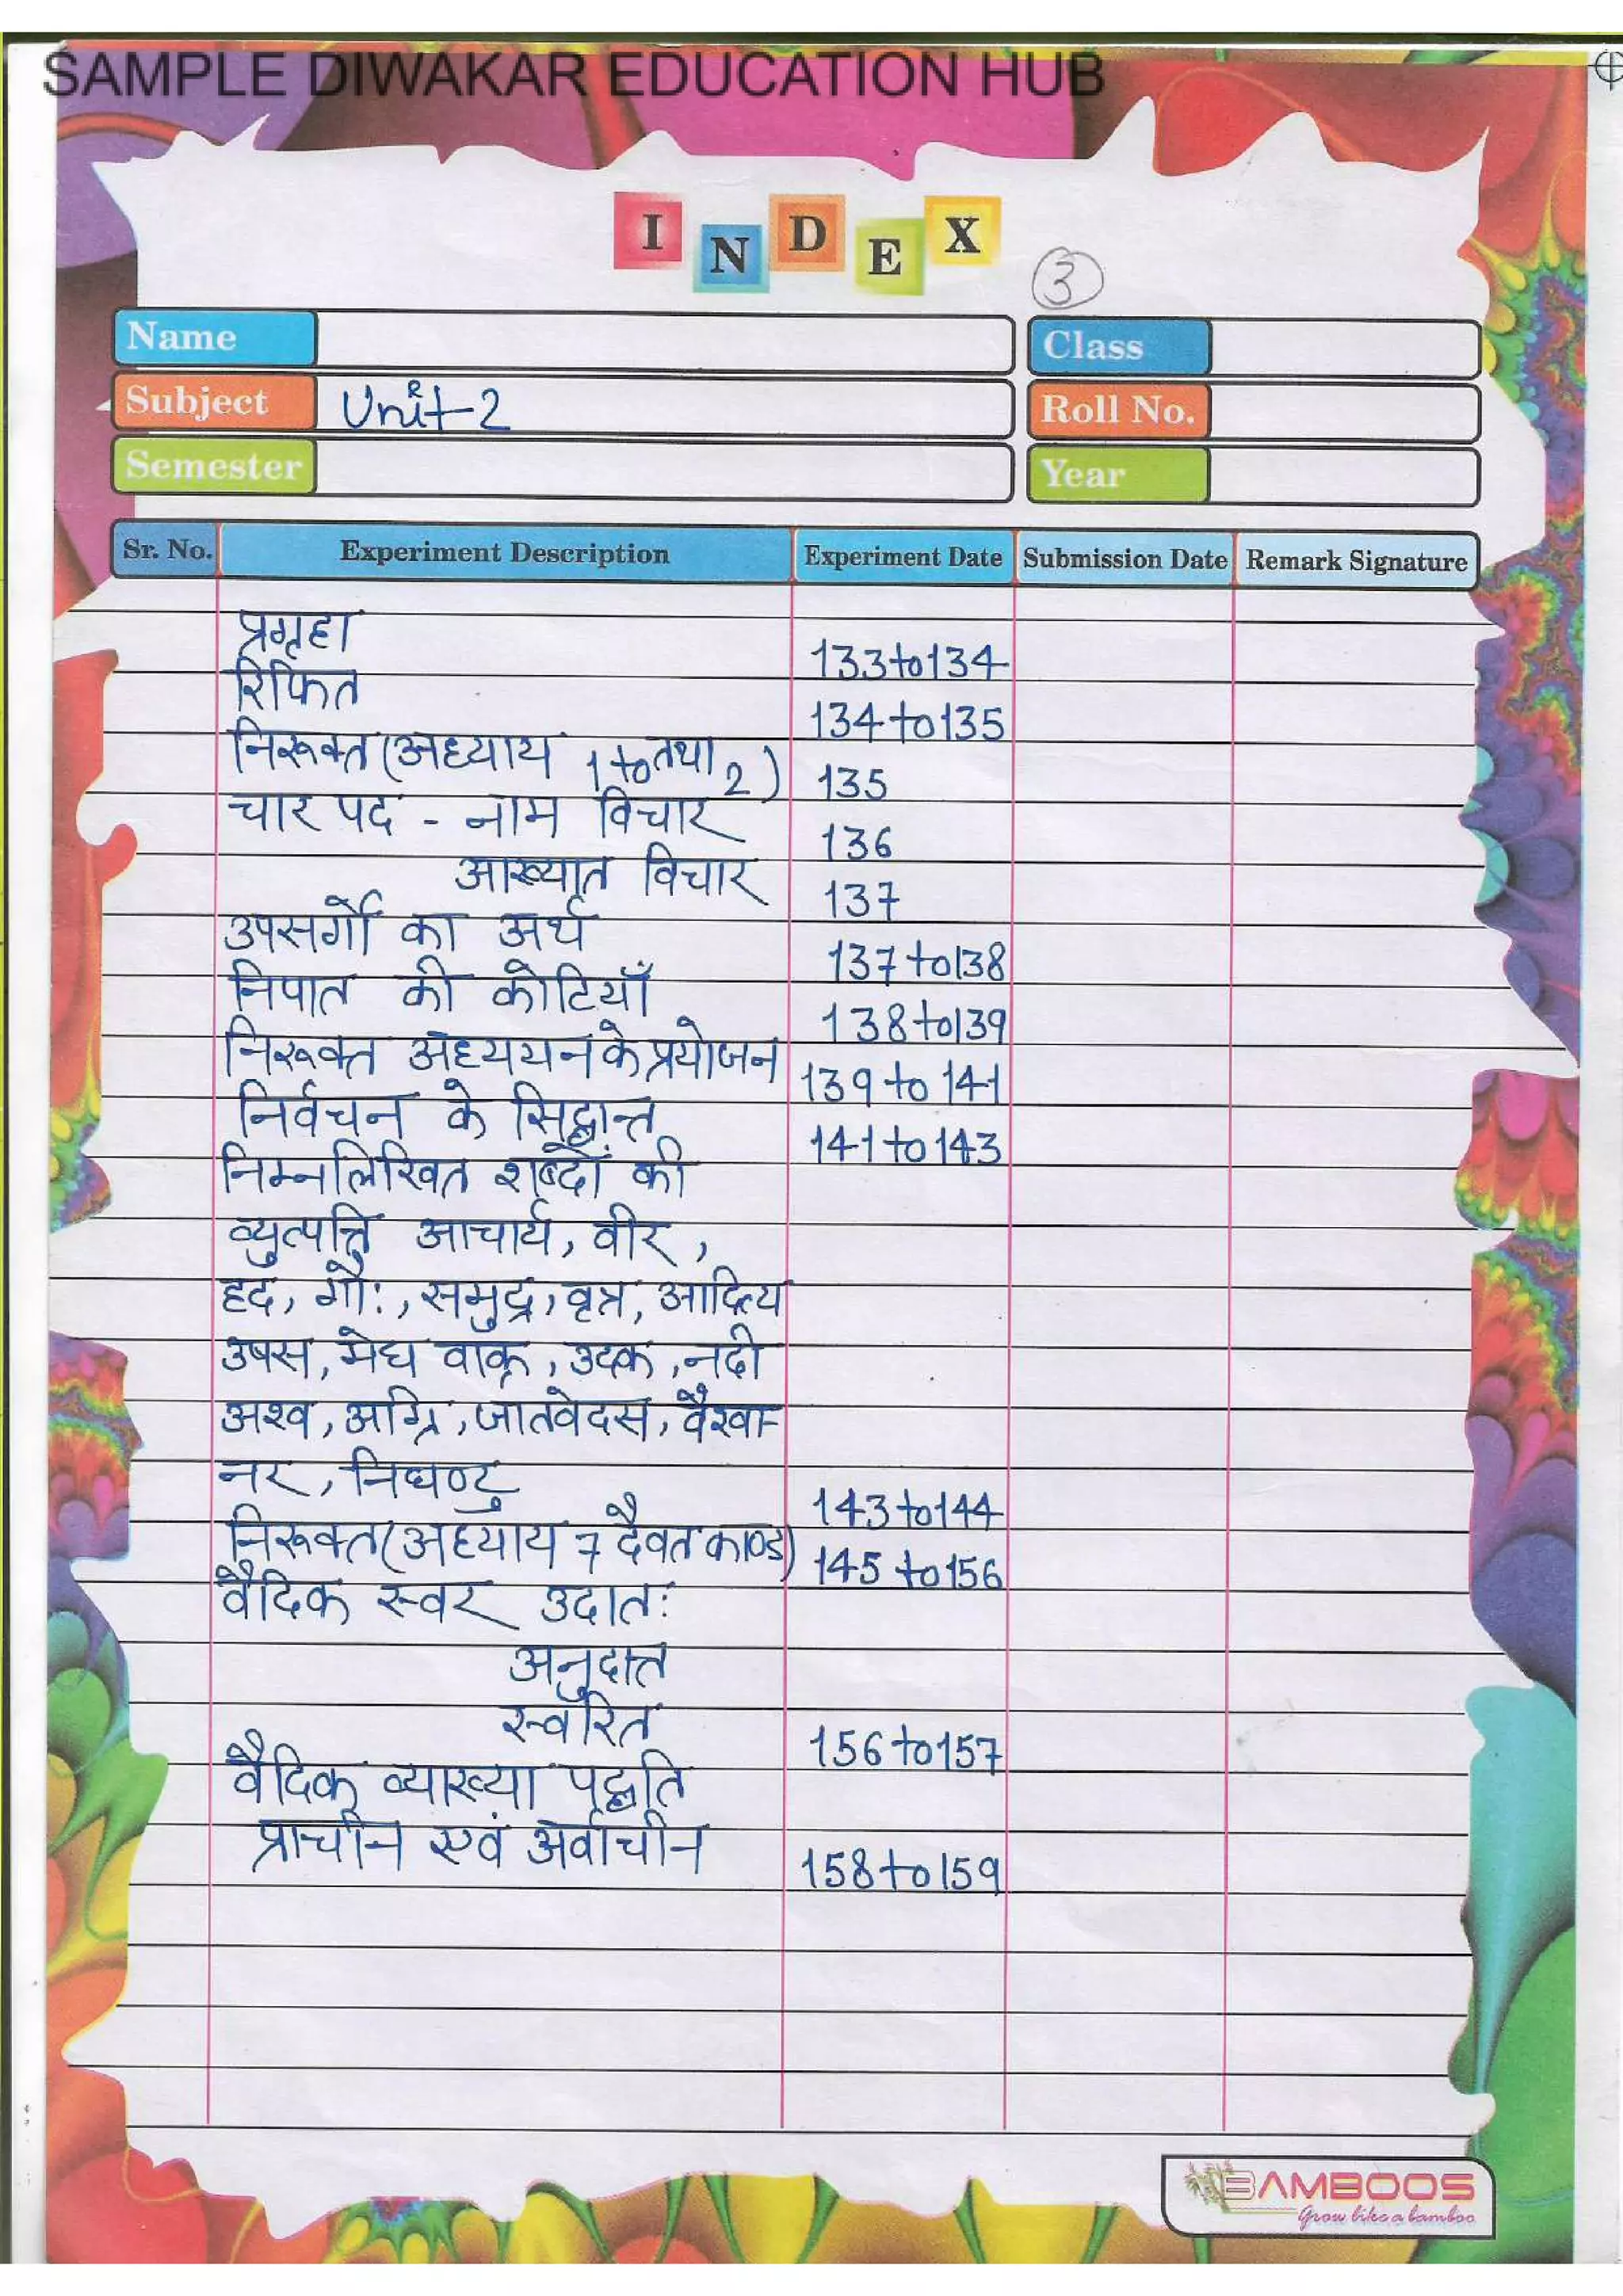 SAMPLE DIWAKAR EDUCATION HUB
INDEX
3
Name
Class
Subject Unit-2
Roll No.
Semester
Year
Sr. No. Experiment Description Experiment Date Submission Date Remark Signature
प्रगृह्य
133 to 134
रिफित
134 to 135
निरूक्त (अध्याय 1 to तथा 2)
135
चार पद - नाम विचार
136
आख्यात विचार
137
उपसर्गों का अर्थ
137 to 138
निपात की कोटियाँ
138 to 139
निरूक्त अध्ययन के प्रयोजन
139 to 141
निर्वचन के सिद्धान्त
141 to 143
निम्नलिखित शब्दों की
व्युत्पत्ति आचार्य, वीर,
हृद, गौः, समुद्र, वृत्र, आदित्य
उषस, मेघ वाक्, उदक, नदी
अश्व, अग्नि, जातवेदस, वैश्वा-
नर, निघण्टु
143 to 144
निरूक्त (अध्याय 7 दैवत काण्ड)
145 to 156
वैदिक स्वर उदातः
अनुदात्त
स्वरित
156 to 157
वैदिक व्याख्या पद्धति
प्राचीन एवं अर्वाचीन
158 to 159
BAMBOOS
Grow like a bamboo